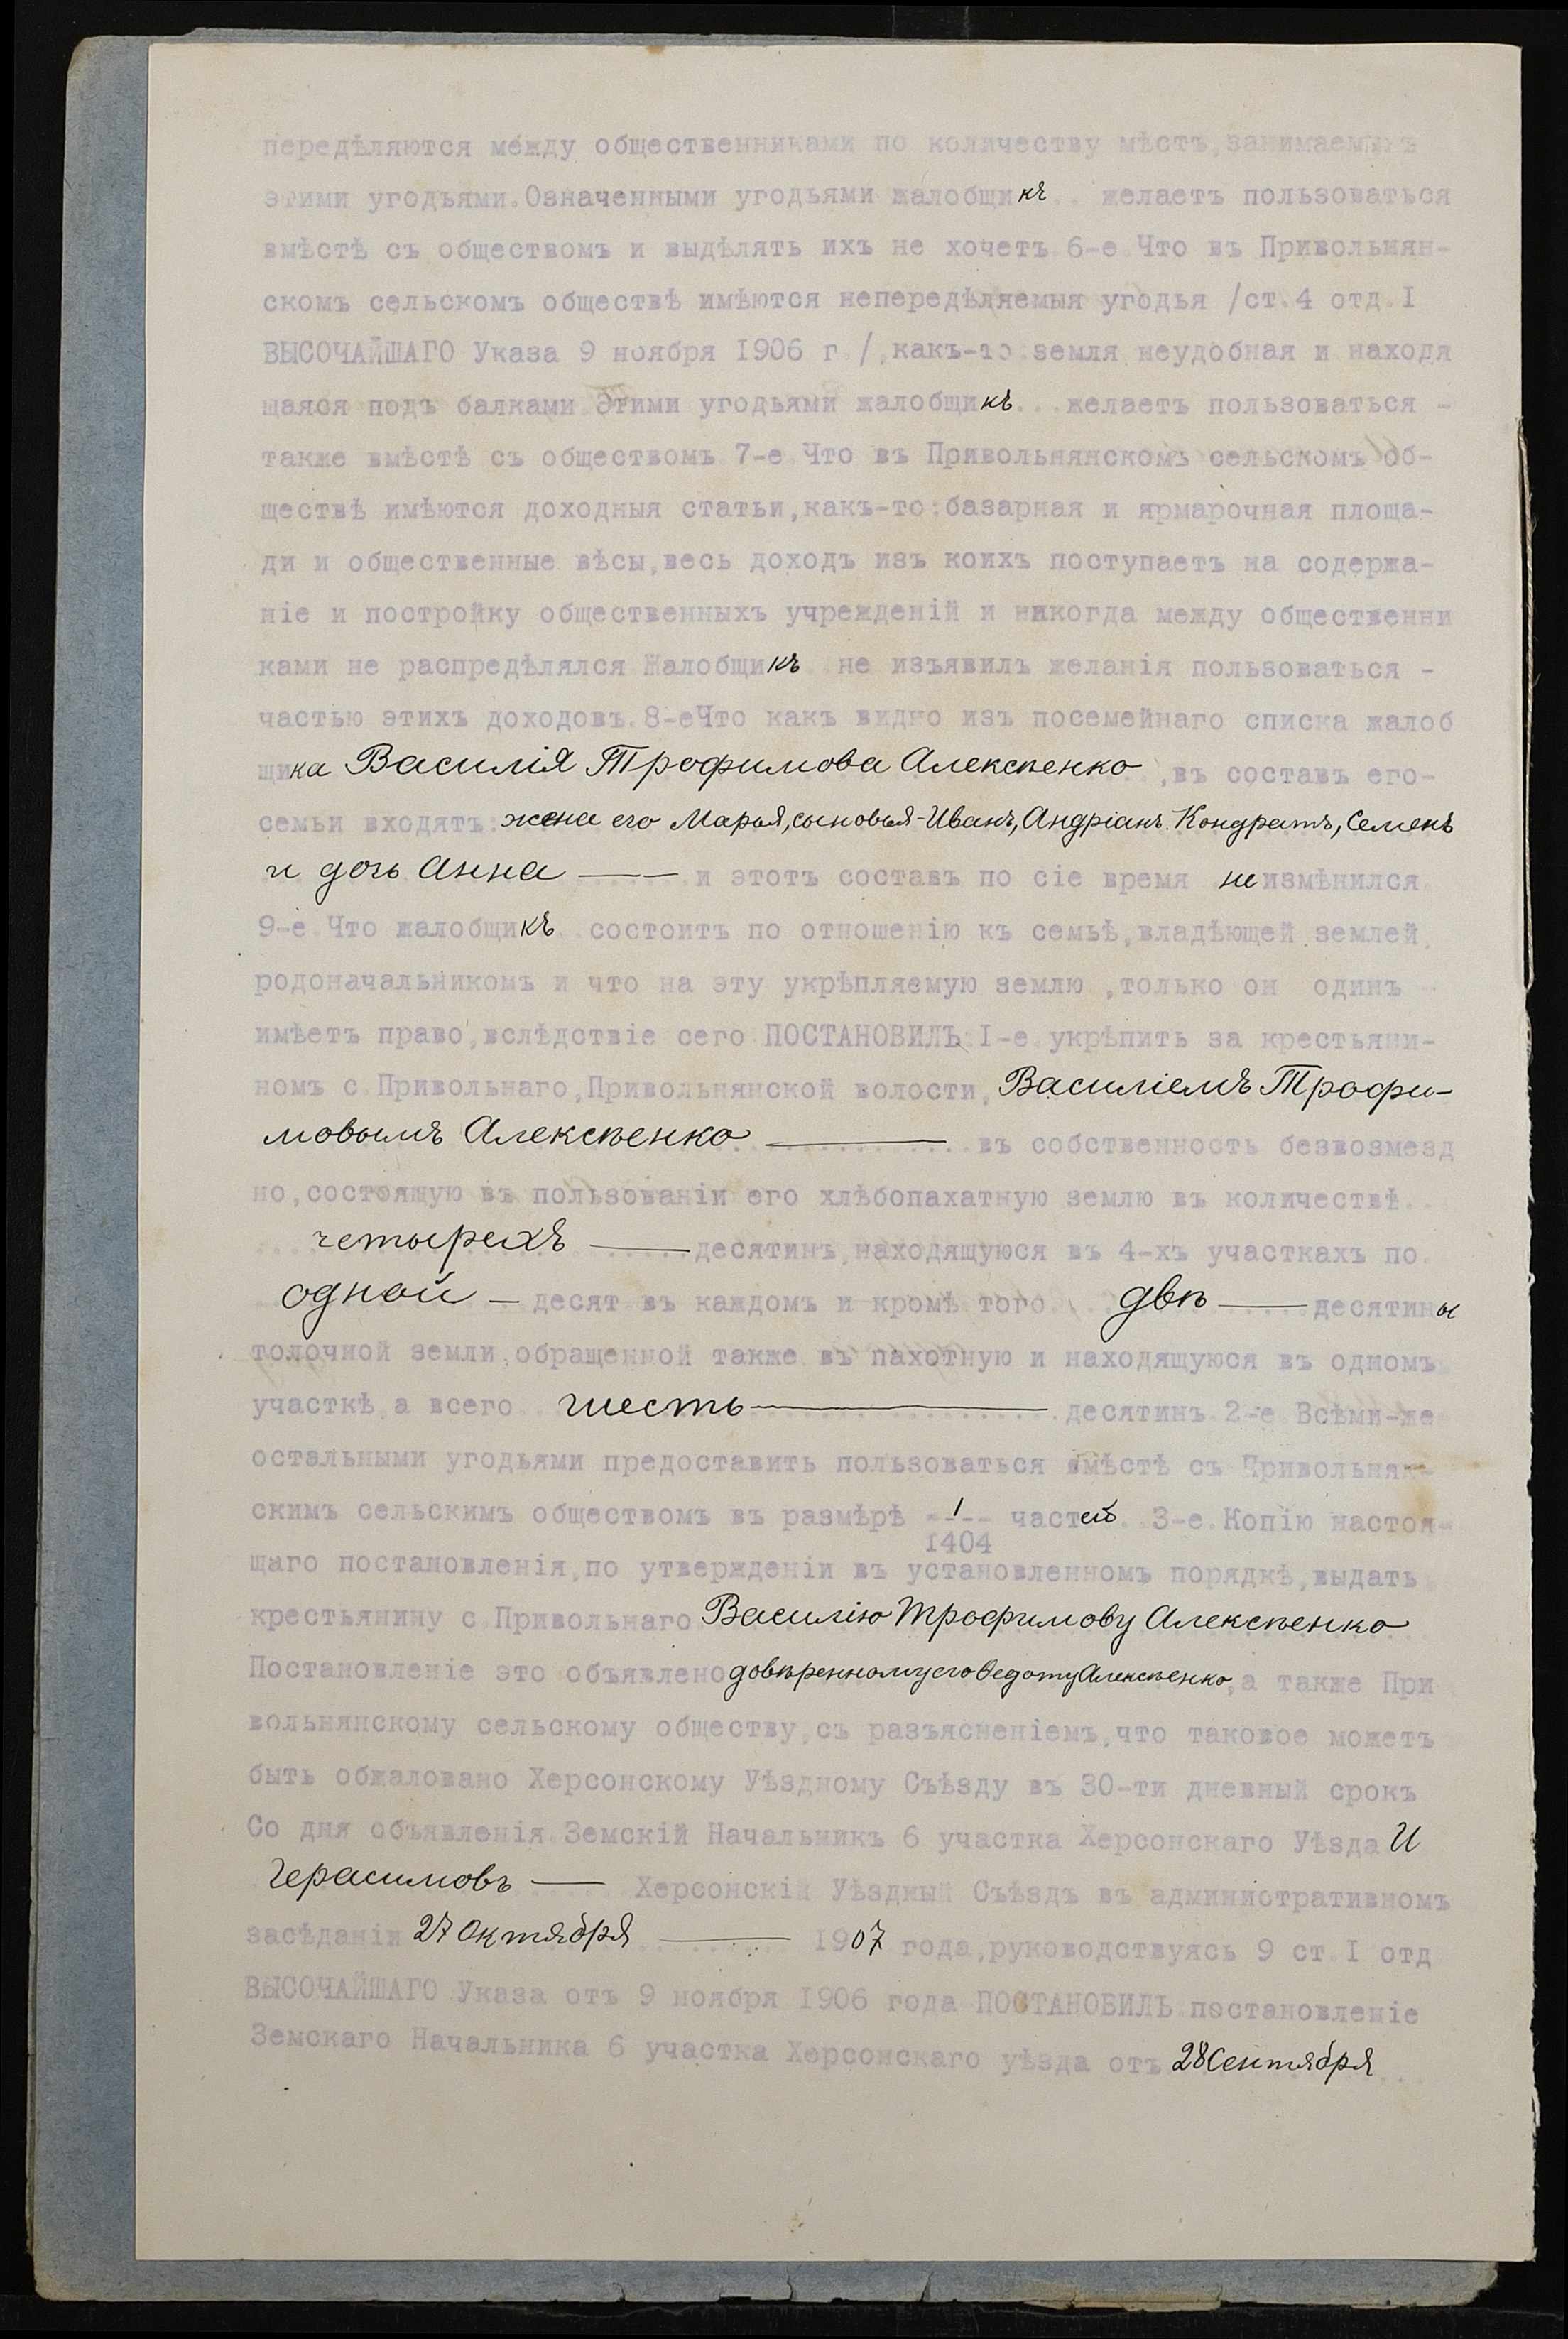 передѣляются между общественниками по количеству мѣстъ, занимаемыхъ
этими угодьями. Означенными угодьями жалобщикъ желаетъ пользоваться
вмѣстѣ съ обществомъ и выдѣлять ихъ не хочетъ. 6-е. Что въ Привольнян-
скомъ сельскомъ обществѣ имѣются непередѣляемыя угодья /ст. 4 отд. I
ВЫСОЧАЙШАГО Указа 9 ноября 1906 г./, какъ-то: земля неудобная и находя
щаяся подъ балками. Этими угодьями жалобщикъ... желаетъ пользоваться -
также вмѣстѣ съ обществомъ. 7-е. Что въ Привольнянскомъ сельскомъ об-
ществѣ имѣются доходныя статьи, какъ-то: базарная и ярмарочная площа-
ди и общественные вѣсы, весь доходъ изъ коихъ поступаетъ на содержа-
ніе и постройку общественныхъ учрежденій и никогда между общественни
ками не распредѣлялся. Жалобщикъ не изъявилъ желанія пользоваться -
частью этихъ доходовъ. 8-еЧто какъ видно изъ посемейнаго списка жалоб
щика Василія Трофимова Алексѣенко, въ составъ его-
семьи входятъ: жена его Марья, сыновья-Иванъ, Андріанъ. Кондратъ, Семенъ
и дочь Анна —— и этотъ составъ по сіе время не измѣнился.
9-е. Что жалобщикъ состоитъ по отношенію къ семьѣ, владѣющей землей,
родоначальникомъ и что на эту укрѣпляемую землю, только он одинъ
имѣетъ право, вслѣдствіе сего ПОСТАНОВИЛЪ: I-е. укрѣпить за крестьяни-
номъ с. Привольнаго, Привольнянской волости, Василіемъ Трофи-
мовымъ Алексѣенко —— въ собственность безвозмезд
но, состоящую въ пользованіи его хлѣбопахатную землю въ количествѣ
четырехъ —— десятинъ, находящуюся въ 4-хъ участкахъ по
одной — десят. въ каждомъ и кромѣ того двѣ —— десятины
толочной земли, обращенной также въ пахотную и находящуюся въ одномъ
участкѣ, а всего шесть —— десятинъ. 2-е. Всѣми-же
остальными угодьями предоставить пользоваться вмѣстѣ съ Привольнян-
скимъ сельскимъ обществомъ въ размѣрѣ 1/1404 частей. 3-е. Копію настоя-
щаго постановленія, по утвержденіи въ установленномъ порядкѣ, выдать
крестьянину с. Привольнаго Василію Трофимову Алексѣенко
Постановленіе это объявлено довѣренному его Ѳедоту Алексѣенко, а также При
вольнянскому сельскому обществу, съ разъясненіемъ, что таковое можетъ
быть обжаловано Херсонскому Уѣздному Съѣзду въ 30-ти дневный срокъ
Со дня объявленія. Земскій Начальникъ 6 участка Херсонскаго Уѣзда И
Герасимовъ —— Херсонскій Уѣздный Съѣздъ въ административномъ
засѣданіи 27 Октября —— 1907 года, руководствуясь 9 ст. I отд
ВЫСОЧАЙШАГО Указа отъ 9 ноября 1906 года ПОСТАНОВИЛЪ: постановленіе
Земскаго Начальника 6 участка Херсонскаго уѣзда отъ 28 Сентября